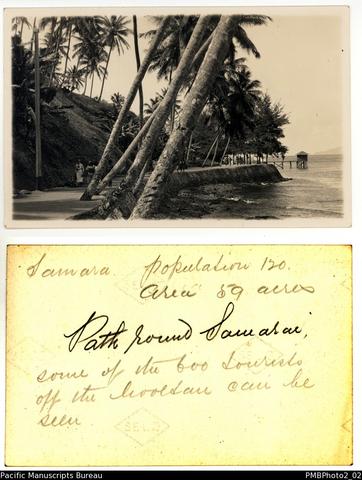 Samara. Population 120.
Area 59 acres
Path round Samarai,
some of the 600 tourists
off the Mooltan can be
seen
Pacific Manuscripts Bureau
PMBPhoto2_02